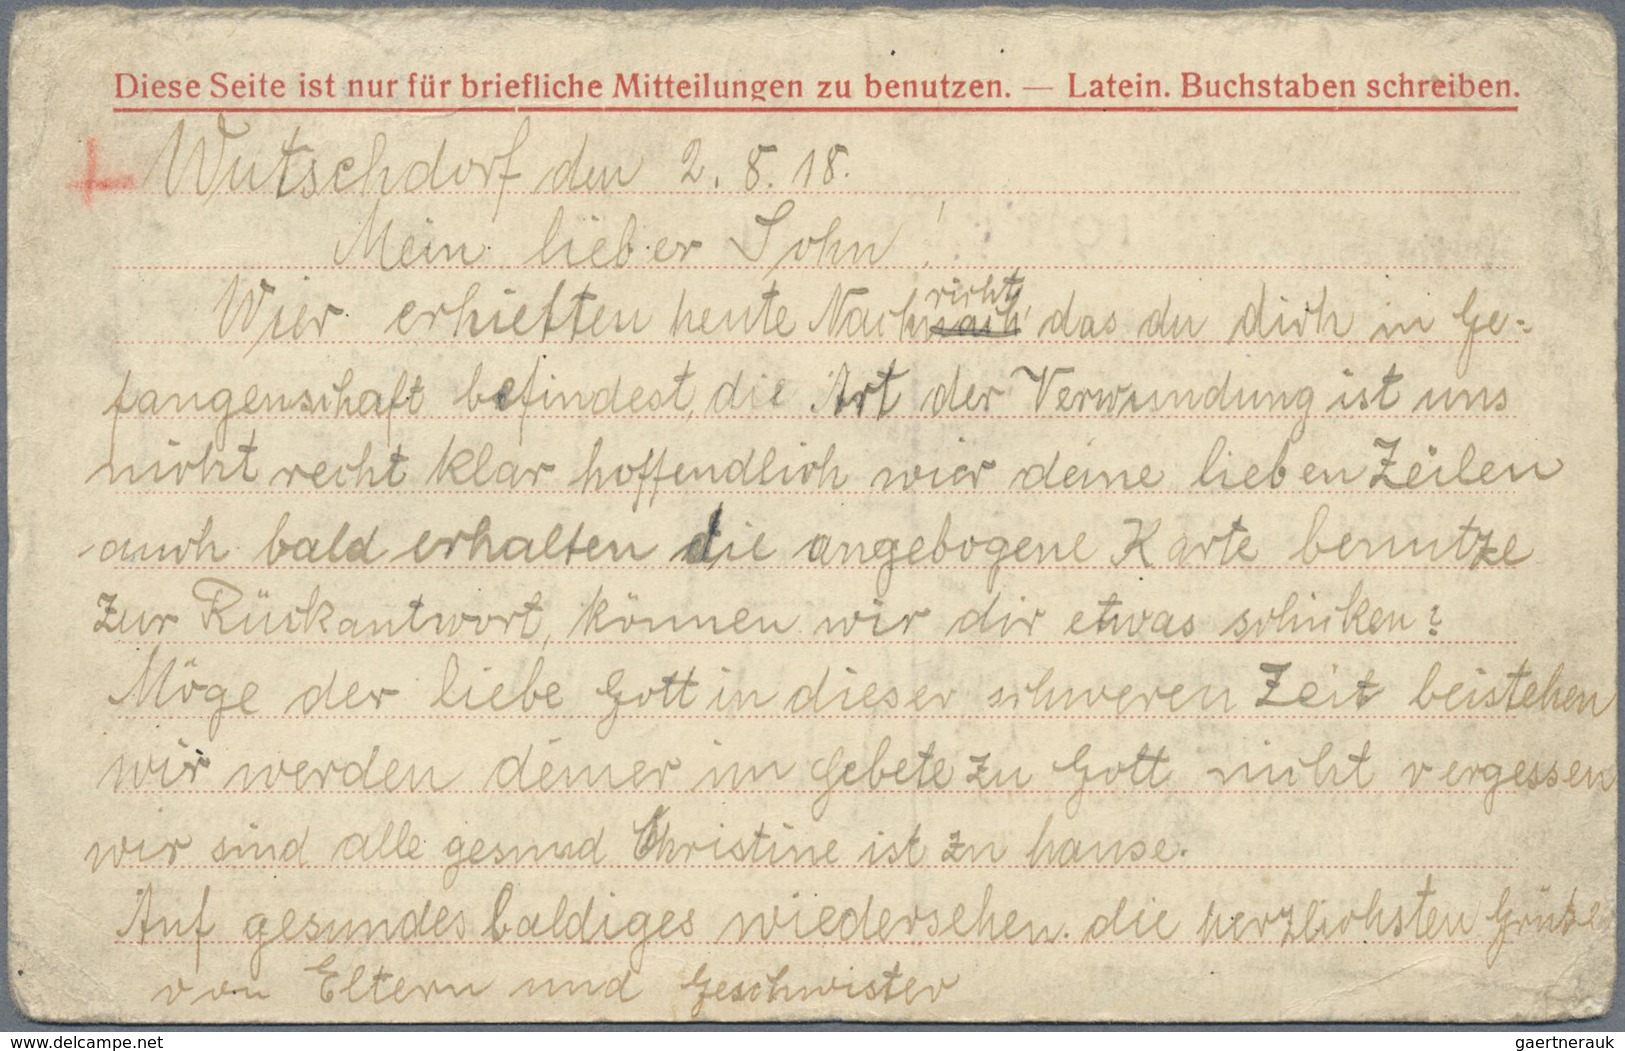 Diese Seite ist nur für briefliche Mitteilungen zu benutzen. — Latein. Buchstaben schreiben.
Wutschdorf den 2. 8. 18.
Mein lieber Sohn!
Wier erhielten heute Nachricht das du dich in Ge-
fangenschaft befindest, die Art der Verwundung ist uns
nicht recht klar hoffendlich wier deine lieben Zeilen
auch bald erhalten die angebogene Karte benutze
zur Rückantwort, können wir dir etwas schicken?
Möge der liebe Gott in dieser schweren Zeit beistehen
wir werden deiner im Gebete zu Gott nicht vergessen
wir sind alle gesund Christine ist zu hause.
Auf gesundes baldiges wiedersehen. die herzlichsten Grüße
von Eltern und Geschwister
delcampe.net
gaertnerauk